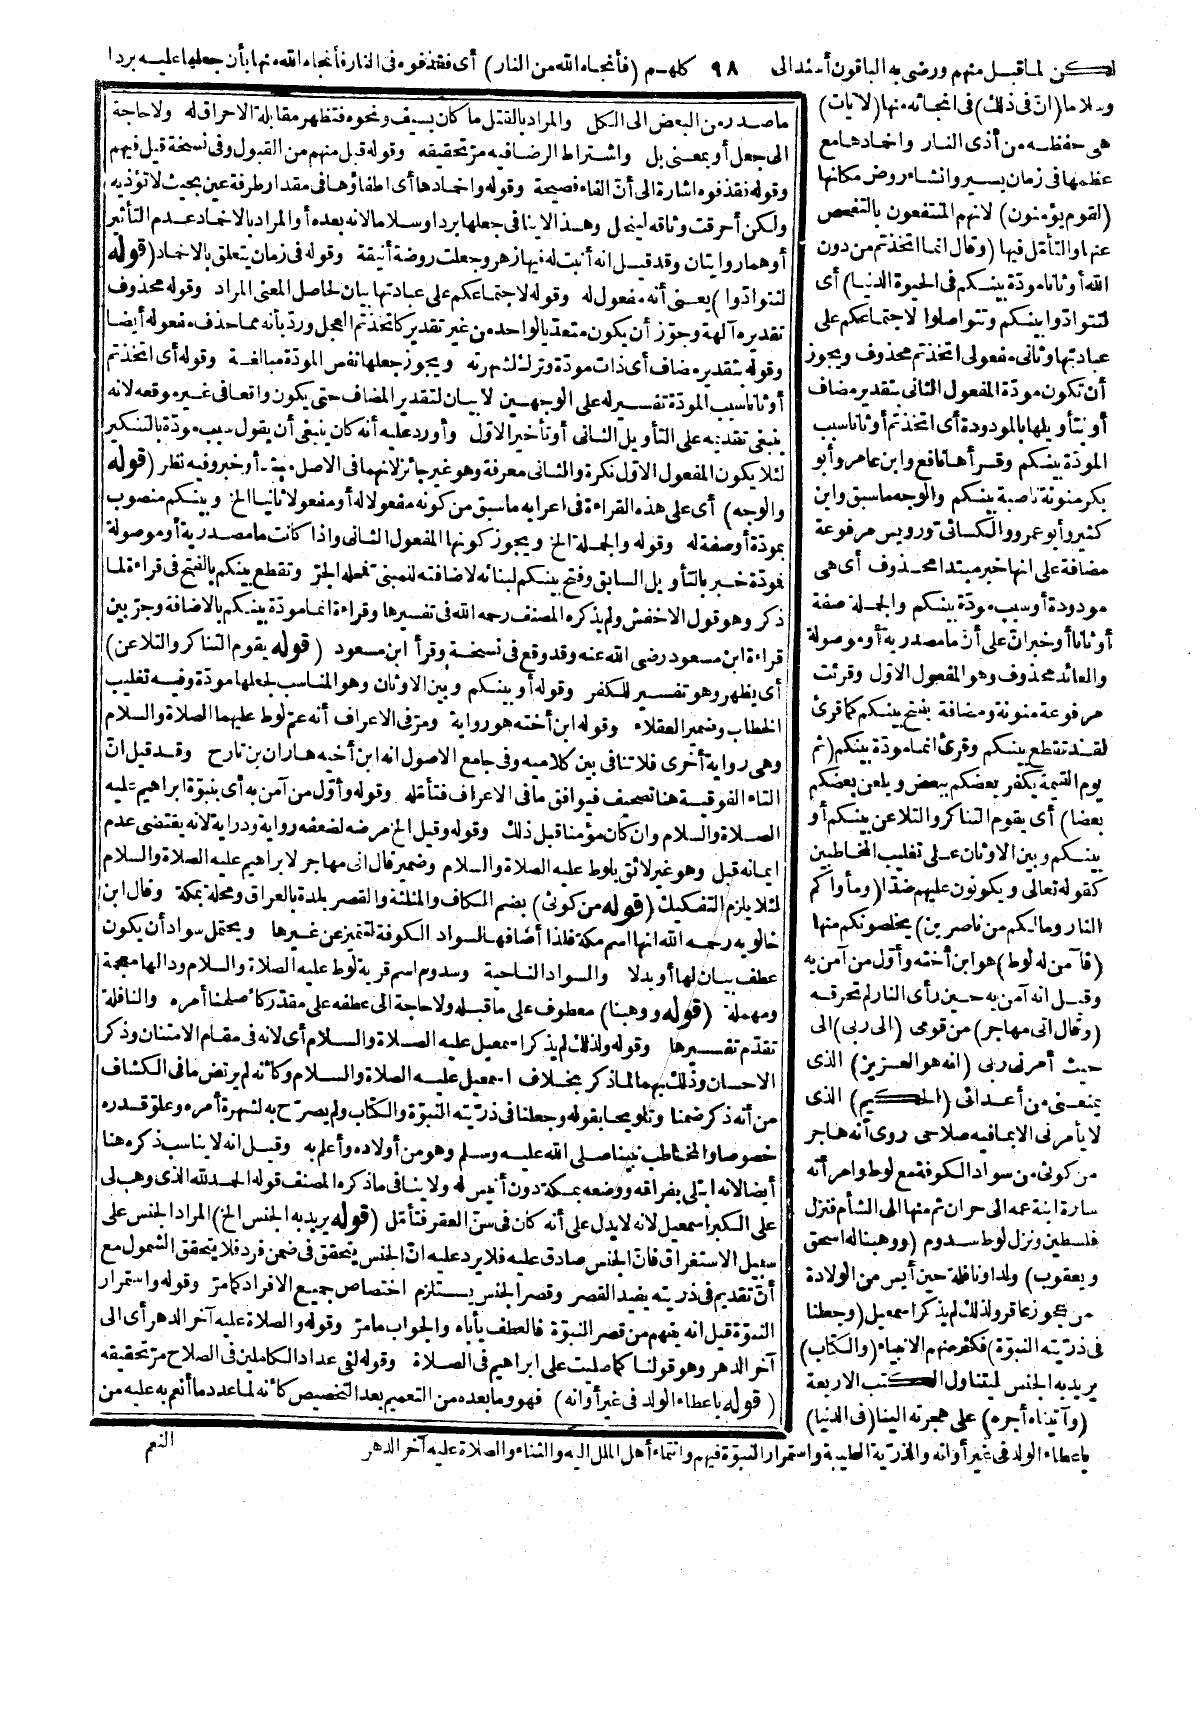 لكن لما قيل منهم ورضى به الباقون أسند الى ٩٨ كلهم (فأنجاه الله من النار) أى فقذفوه فى النار فأنجاه الله منها بأن جعلها عليه بردا
وسلاما (ان فى ذلك) فى انجائه منها (لآيات)
هى حفظه من أذى النار واخمادها مع
عظمها فى زمان يسير وانشاء روض مكانها
(لقوم يؤمنون) لانهم المنتفعون بالتفحص
عنها والتأمل فيها (وقال انما اتخذتم من دون
الله أوثانا مودة بينكم فى الحيوة الدنيا) أى
لتتوادوا بينكم وتتواصلوا لاجتماعكم على
عبادتها وثانى مفعولى اتخذتم محذوف ويجوز
أن تكون مودة المفعول الثانى بتقدير مضاف
أو بتأويلها بالمودودة أى اتخذتم أوثانا سبب
المودة بينكم وقرأها نافع وابن عامر وأبو
بكر منونة ناصبة بينكم والوجه ماسبق وابن
كثير وأبو عمرو والكسائى ورويس مرفوعة
مضافة على انها خبر مبتدا محذوف أى هى
مودودة أو سبب مودة بينكم والجملة صفة
أوثانا أو خبر ان على أن ما مصدرية أو موصولة
والعائد محذوف وهو المفعول الاول وقرئت
مرفوعة منونة ومضافة بفتح بينكم كما قرئ
لقد تقطع بينكم وقرئ انما مودة بينكم (ثم
يوم القيمة يكفر بعضكم ببعض ويلعن بعضكم
بعضا) أى يقوم التناكر والتلاعن بينكم أو
بينكم وبين الاوثان على تغليب المخاطبين
كقوله تعالى ويكونون عليهم ضدا (ومأواكم
النار ومالكم من ناصرين) يخلصونكم منها
(فآمن له لوط) هو ابن أخته وأول من آمن به
وقيل انه آمن به حين رأى النار لم تحرقه
(وقال انى مهاجر) من قومى (الى ربى) الى
حيث أمرنى ربى (انه هو العزيز) الذى
يمنعنى من أعدائى (الحكيم) الذى
لا يأمرنى الا بما فيه صلاحى روى أنه هاجر
من كوثى من سواد الكوفة مع لوط وامرأته
سارة ابنة عمه الى حران ثم منها الى الشأم فنزل
فلسطين ونزل لوط سدوم (ووهبنا له اسحق
ويعقوب) ولدا ونافلة حين أيس من الولادة
من عجوز عاقر ولذلك لم يذكر اسمعيل (وجعلنا
فى ذريته النبوة) فكثر منهم الانبياء (والكتاب)
يريد به الجنس ليتناول الكتب الاربعة
(وآتيناه أجره) على هجرته الينا (فى الدنيا)
باعطاء الولد فى غير أوانه والذرية الطيبة واستمرار النبوة فيهم وانتماء أهل الملل اليه والثناء والصلاة عليه آخر الدهر
ما صدر من البعض الى الكل والمراد بالقتل ما كان بسيف ونحوه فتظهر مقابلة الاحراق له ولا حاجة
الى جعل أو بمعنى بل واشتراط الرضا فيه مر تحقيقه وقوله قبل منهم من القبول وفى نسخة قيل فيهم
وقوله فقذفوه اشارة الى أن الفاء فصيحة وقوله واخمادها أى اطفاؤها فى مقدار طرفة عين بحيث لا تؤذيه
ولكن أحرقت وثاقه لينحل وهذا لا ينافى جعلها بردا وسلاما لانه بعده أو المراد بالاخماد عدم التأثير
أو هما روايتان وقد قيل انه أنبت له فيها زهر وجعلت روضة أنيقة وقوله فى زمان يتعلق بالاخماد (قوله
لتتوادوا) يعنى أنه مفعول له وقوله لاجتماعكم على عبادتها بيان لحاصل المعنى المراد وقوله محذوف
تقديره آلهة وجوز أن يكون متعديا لواحد من غير تقدير كاتخذتم العجل ورد بأنه مما حذف مفعوله أيضا
وقوله بتقدير مضاف أى ذات مودة وتركه لشهرته ويجوز جعلها نفس المودة مبالغة وقوله أى اتخذتم
أوثانا سبب المودة تفسير له على الوجهين لا بيان لتقدير المضاف حتى يكون واقعا فى غير موقعه لانه
ينبغى تقديمه على التأويل الثانى أو تأخير الاول وأورد عليه أنه كان ينبغى أن يقول سبب مودة بالتنكير
لئلا يكون المفعول الاول نكرة والثانى معرفة وهو غير جائز لانهما فى الاصل مبتدأ وخبر وفيه نظر (قوله
والوجه) أى على هذه القراءة فى اعرابه ماسبق من كونه مفعولا له أو مفعولا ثانيا الخ وبينكم منصوب
بمودة أو صفة له وقوله والجملة الخ ويجوز كونها المفعول الثانى واذا كانت ما مصدرية أو موصولة
فمودة خبر بالتأويل السابق وفتح بينكم لبنائه لاضافته للمبنى فمحله الجر وتقطع بينكم بالفتح فى قراءة لما
ذكر وهو قول الاخفش ولم يذكره المصنف رحمه الله فى تفسيرها وقراءة انما مودة بينكم بالاضافة وجر بين
قراءة ابن مسعود رضى الله عنه وقد وقع فى نسخة وقرأ ابن مسعود (قوله يقوم التناكر والتلاعن)
أى يظهر وهو تفسير للكفر وقوله أو بينكم وبين الاوثان وهو المناسب لجعلها مودة وفيه تغليب
الخطاب وضمير العقلاء وقوله ابن أخته هو رواية ومر فى الاعراف أنه عم لوط عليهما الصلاة والسلام
وهى رواية أخرى فلا تنافى بين كلاميه وفى جامع الاصول انه ابن أخيه هاران بن تارح وقد قيل ان
التاء الفوقية هنا تصحيف فيوافق ما فى الاعراف فتأمله وقوله وأول من آمن به أى بنبوة ابراهيم عليه
الصلاة والسلام وان كان مؤمنا قبل ذلك وقوله وقيل الخ مرضه لضعفه رواية ودراية لانه يقتضى عدم
ايمانه قبل وهو غير لائق بلوط عليه الصلاة والسلام وضمير قال انى مهاجر لابراهيم عليه الصلاة والسلام
لئلا يلزم التفكيك (قوله من كوثى) بضم الكاف والمثلثة والقصر بلدة بالعراق ومحلة بمكة وقال ابن
خالويه رحمه الله انها اسم مكة فلذا أضافها لسواد الكوفة لتتميز عن غيرها ويحتمل سواد أن يكون
عطف بيان لها أو بدلا والسواد الناحية وسدوم اسم قرية لوط عليه الصلاة والسلام ودالها معجمة
ومهملة (قوله ووهبنا) معطوف على ما قبله ولا حاجة الى عطفه على مقدر كأصلحنا أمره والنافلة
تقدم تفسيرها وقوله ولذلك لم يذكر اسمعيل عليه الصلاة والسلام أى لانه فى مقام الامتنان وذكر
الاحسان وذلك بهما لما ذكر بخلاف اسمعيل عليه الصلاة والسلام وكأنه لم يرتض ما فى الكشاف
من أنه ذكر ضمنا وتلويحا بقوله وجعلنا فى ذريته النبوة والكتاب ولم يصرح به لشهرة أمره وعلو قدره
خصوصا والمخاطب نبينا صلى الله عليه وسلم وهو من أولاده وأعلم به وقيل انه لا يناسب ذكره هنا
أيضا لانه ابتلى بفراقه ووضعه بمكة دون أنيس له ولا ينافى ما ذكره المصنف قوله الحمد لله الذى وهب لى
على الكبر اسمعيل لانه لا يدل على أنه كان فى سن العقر فتأمل (قوله يريد به الجنس الخ) المراد الجنس على
سبيل الاستغراق فان الجنس صادق عليه فلا يرد عليه ان الجنس يتحقق فى ضمن فرد فلا يتحقق الشمول مع
أن تقديم فى ذريته يفيد القصر وقصر الجنس يستلزم اختصاص جميع الافراد كما مر وقوله واستمرار
النبوة قيل انه يفهم من قصر النبوة فالعطف يأباه والجواب ما مر وقوله والصلاة عليه آخر الدهر أى الى
آخر الدهر وهو قولنا كما صليت على ابراهيم فى الصلاة وقوله لفى عداد الكاملين فى الصلاح مر تحقيقه
(قوله باعطاء الولد فى غير أوانه) فهو وما بعده من التعميم بعد التخصيص كأنه لما عدد ما أنعم به عليه من
النعم